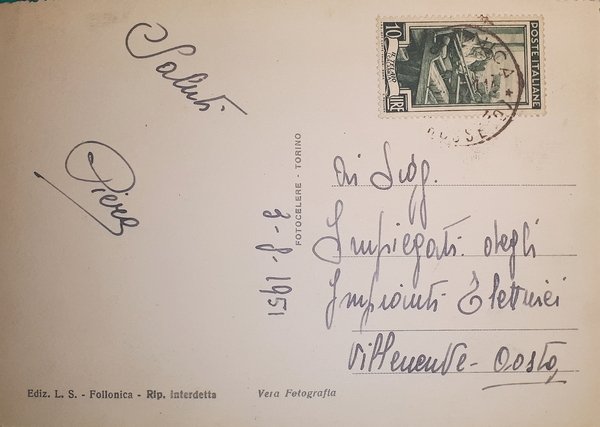 Saluti
Piera
9-8-1951
FOTOCELERE - TORINO
POSTE ITALIANE
10
LIRE
Ai Sigg.
Impiegati degli
Impianti Elettrici
Villeneuve - Aosta
Ediz. L. S. - Follonica - Rip. Interdetta
Vera Fotografia